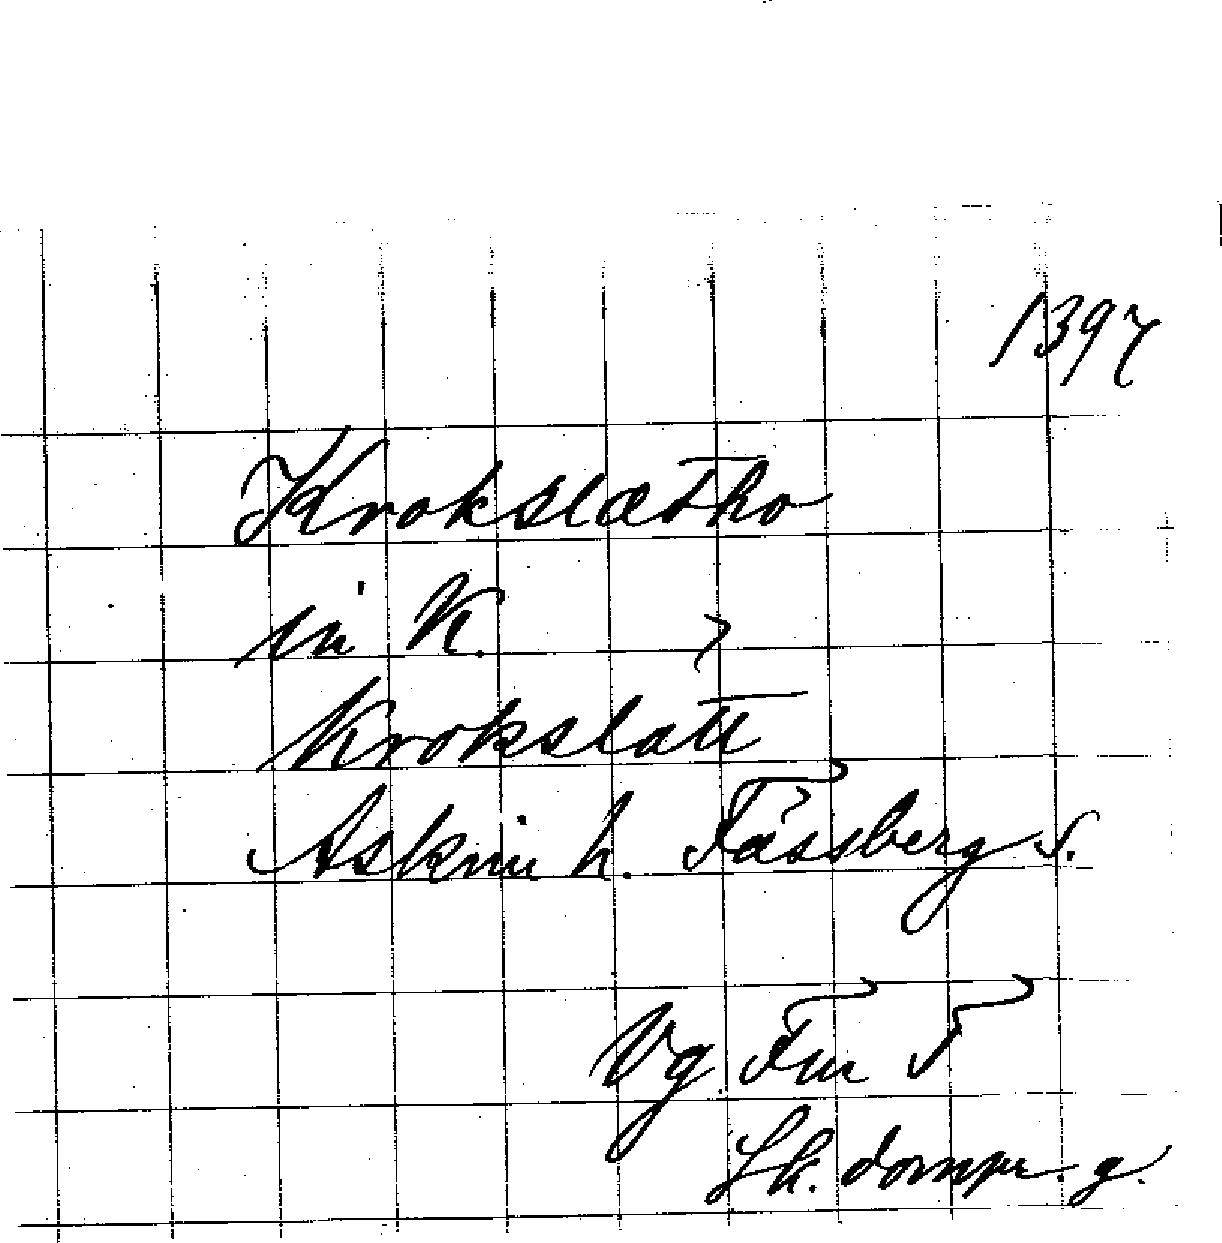 1397
Krokslætho
in K.
Krokslätt
Askim h. Fässberg s.
Vg Fm F
Sk. dompr. g.